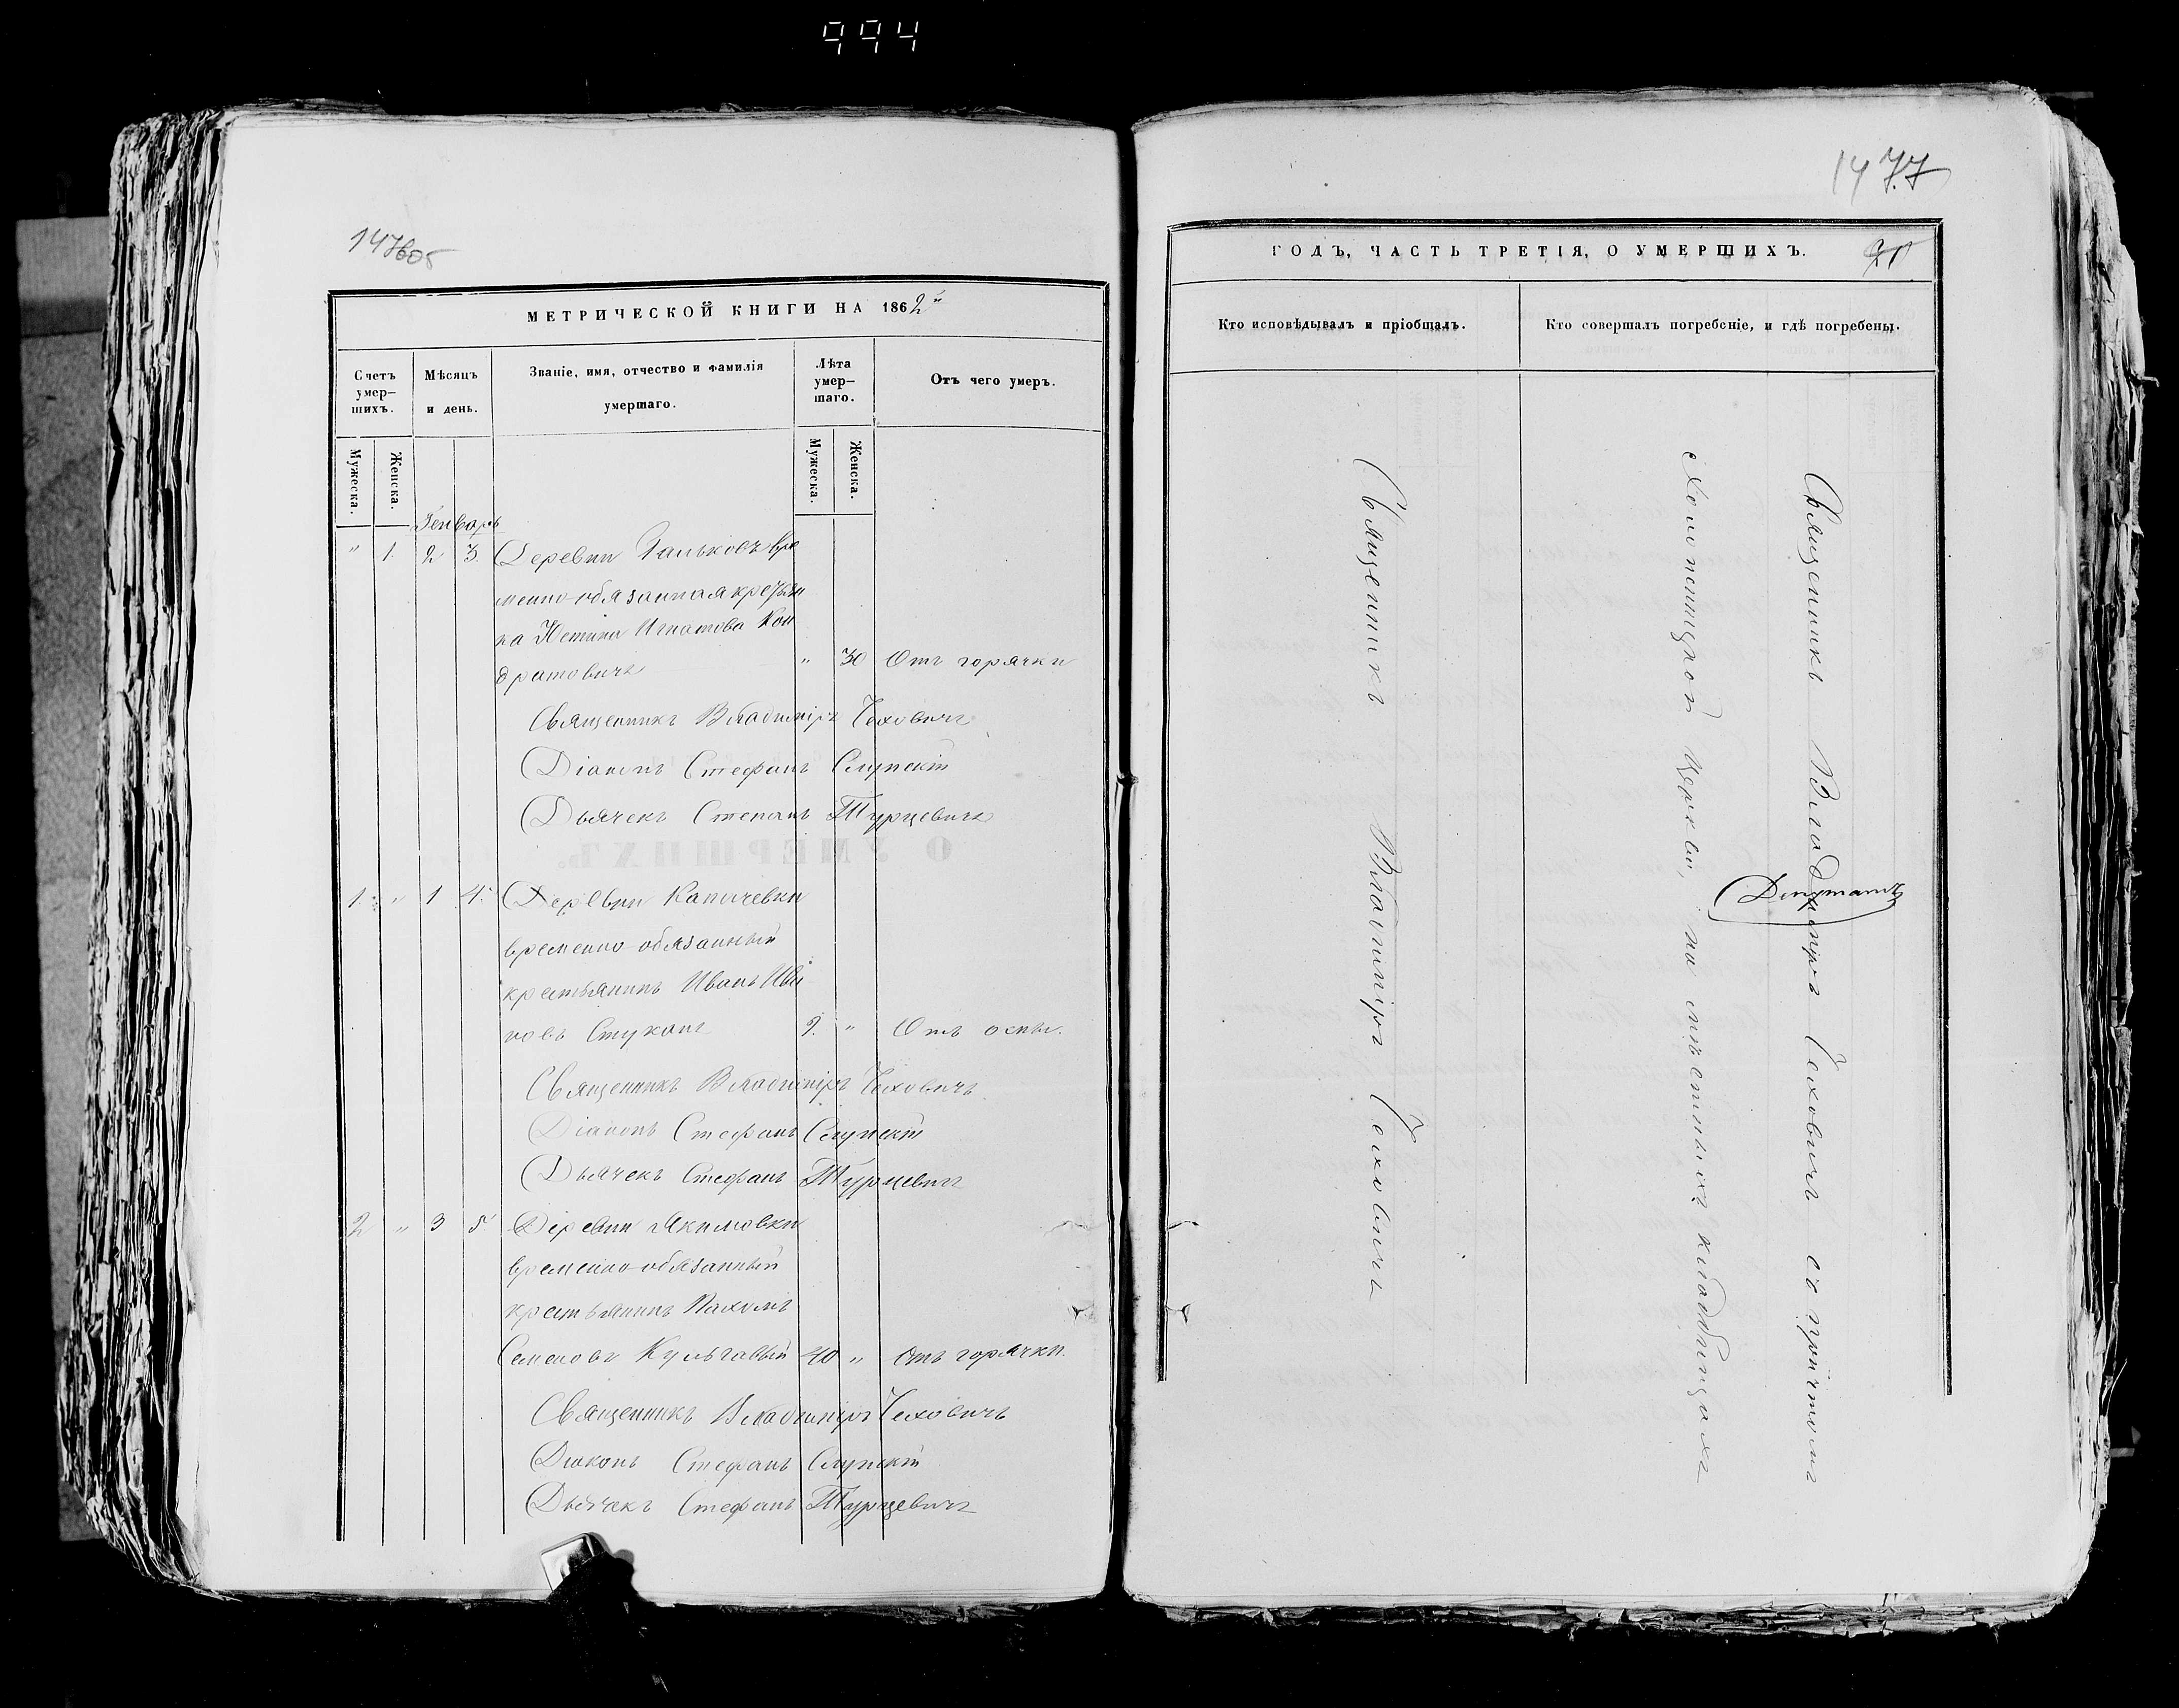 994
147об
МЕТРИЧЕСКОЙ КНИГИ НА 1862й
Счетъ умер-шихъ.
Мѣсяцъ и день.
Званіе, имя, отчество и фамилія умершаго.
Лѣта умер-шаго.
Отъ чего умеръ.
Мужеска.
Женска.
Мужеска.
Женска.
Генварь
" 1. 2 3. Деревни вре
менно-обязанная крестьян
ка Юстина Игнатова Кон
дратовичъ " 30 Отъ горячки
Священникъ Владиміръ Чеховичъ
Діаконъ Стефанъ Слупскій
Дьячекъ Степанъ Турцевичъ
1. " 1 4. Деревни Капичевки
временно-обязанный
крестьянинъ Иванъ Ива
новъ Стуканъ 9. " Отъ оспы.
Священникъ Владиміръ Чеховичъ
Діаконъ Стефанъ Слупскій
Дьячекъ Стефанъ Турцевичъ
2 " 3 5. Деревни Якимовки
временно-обязанный
крестьянинъ Пахомъ
Семеновъ Кульгавый 40 " Отъ горячки.
Священникъ Владиміръ Чеховичъ
Діаконъ Стефанъ Слупскій
Дьячекъ Стефанъ Турцевичъ
1477
ГОДЪ, ЧАСТЬ ТРЕТІЯ, О УМЕРШИХЪ.
Кто исповѣдывалъ и пріобщалъ.
Кто совершалъ погребеніе, и гдѣ погребены.
Священникъ Владиміръ Чеховичъ
Священникъ Владиміръ Чеховичъ съ причтомъ
церкви, на мѣстныхъ кладбищахъ